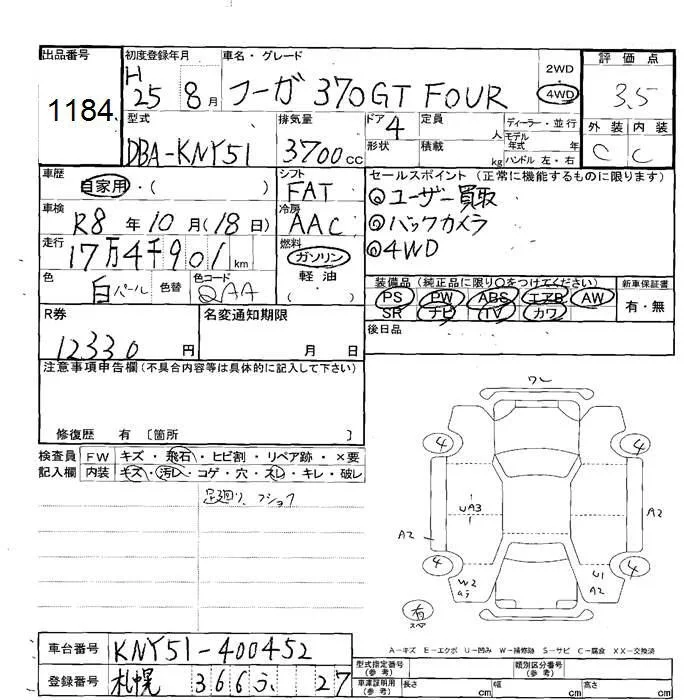 出品番号 初度登録年月 車名・グレード 2WD・4WD 評価点
1184 H 25 8月 フーガ 370GT FOUR 3.5
型式 排気量 ドア 4 定員 人 ディーラー・並行 外装 内装
DBA-KNY51 3700cc 形状 積載 kg モデル年式 年 ハンドル 左・右 C C
車歴 シフト セールスポイント (正常に機能するものに限ります)
自家用・( ) FAT ◎ユーザー買取
車検 R8年10月(18日) 冷房 AAC ◎バックカメラ
走行 17万4千901km 燃料 ガソリン ◎4WD
軽油
( )
色 白パール 色替 色コード QAA
装備品 (純正品に限り○をつけてください) 新車保証書
PS PW ABS エアB AW 有・無
SR ナビ TV カワ
R券 名変通知期限 後日品
12330円 月 日
注意事項申告欄 (不具合内容等は具体的に記入して下さい)
修復歴 有 〔箇所 〕
検査員 FW キズ・飛石・ヒビ割・リペア跡・×要
記入欄 内装 キズ・汚レ・コゲ・穴・スレ・キレ・破レ
足廻り、フショク
ワレ
4 4
UA3
A2 A2
4 4
W2 U1
A2
有
スペア
A-キズ E-エクボ U-凹み W-補修跡 S-サビ C-腐食 XX-交換済
車台番号 KNY51-400452
登録番号 札幌 366 27
型式指定番号 (参考) 類別区分番号 (参考)
車庫証明用 (参考) 長さ cm 幅 cm 高さ cm